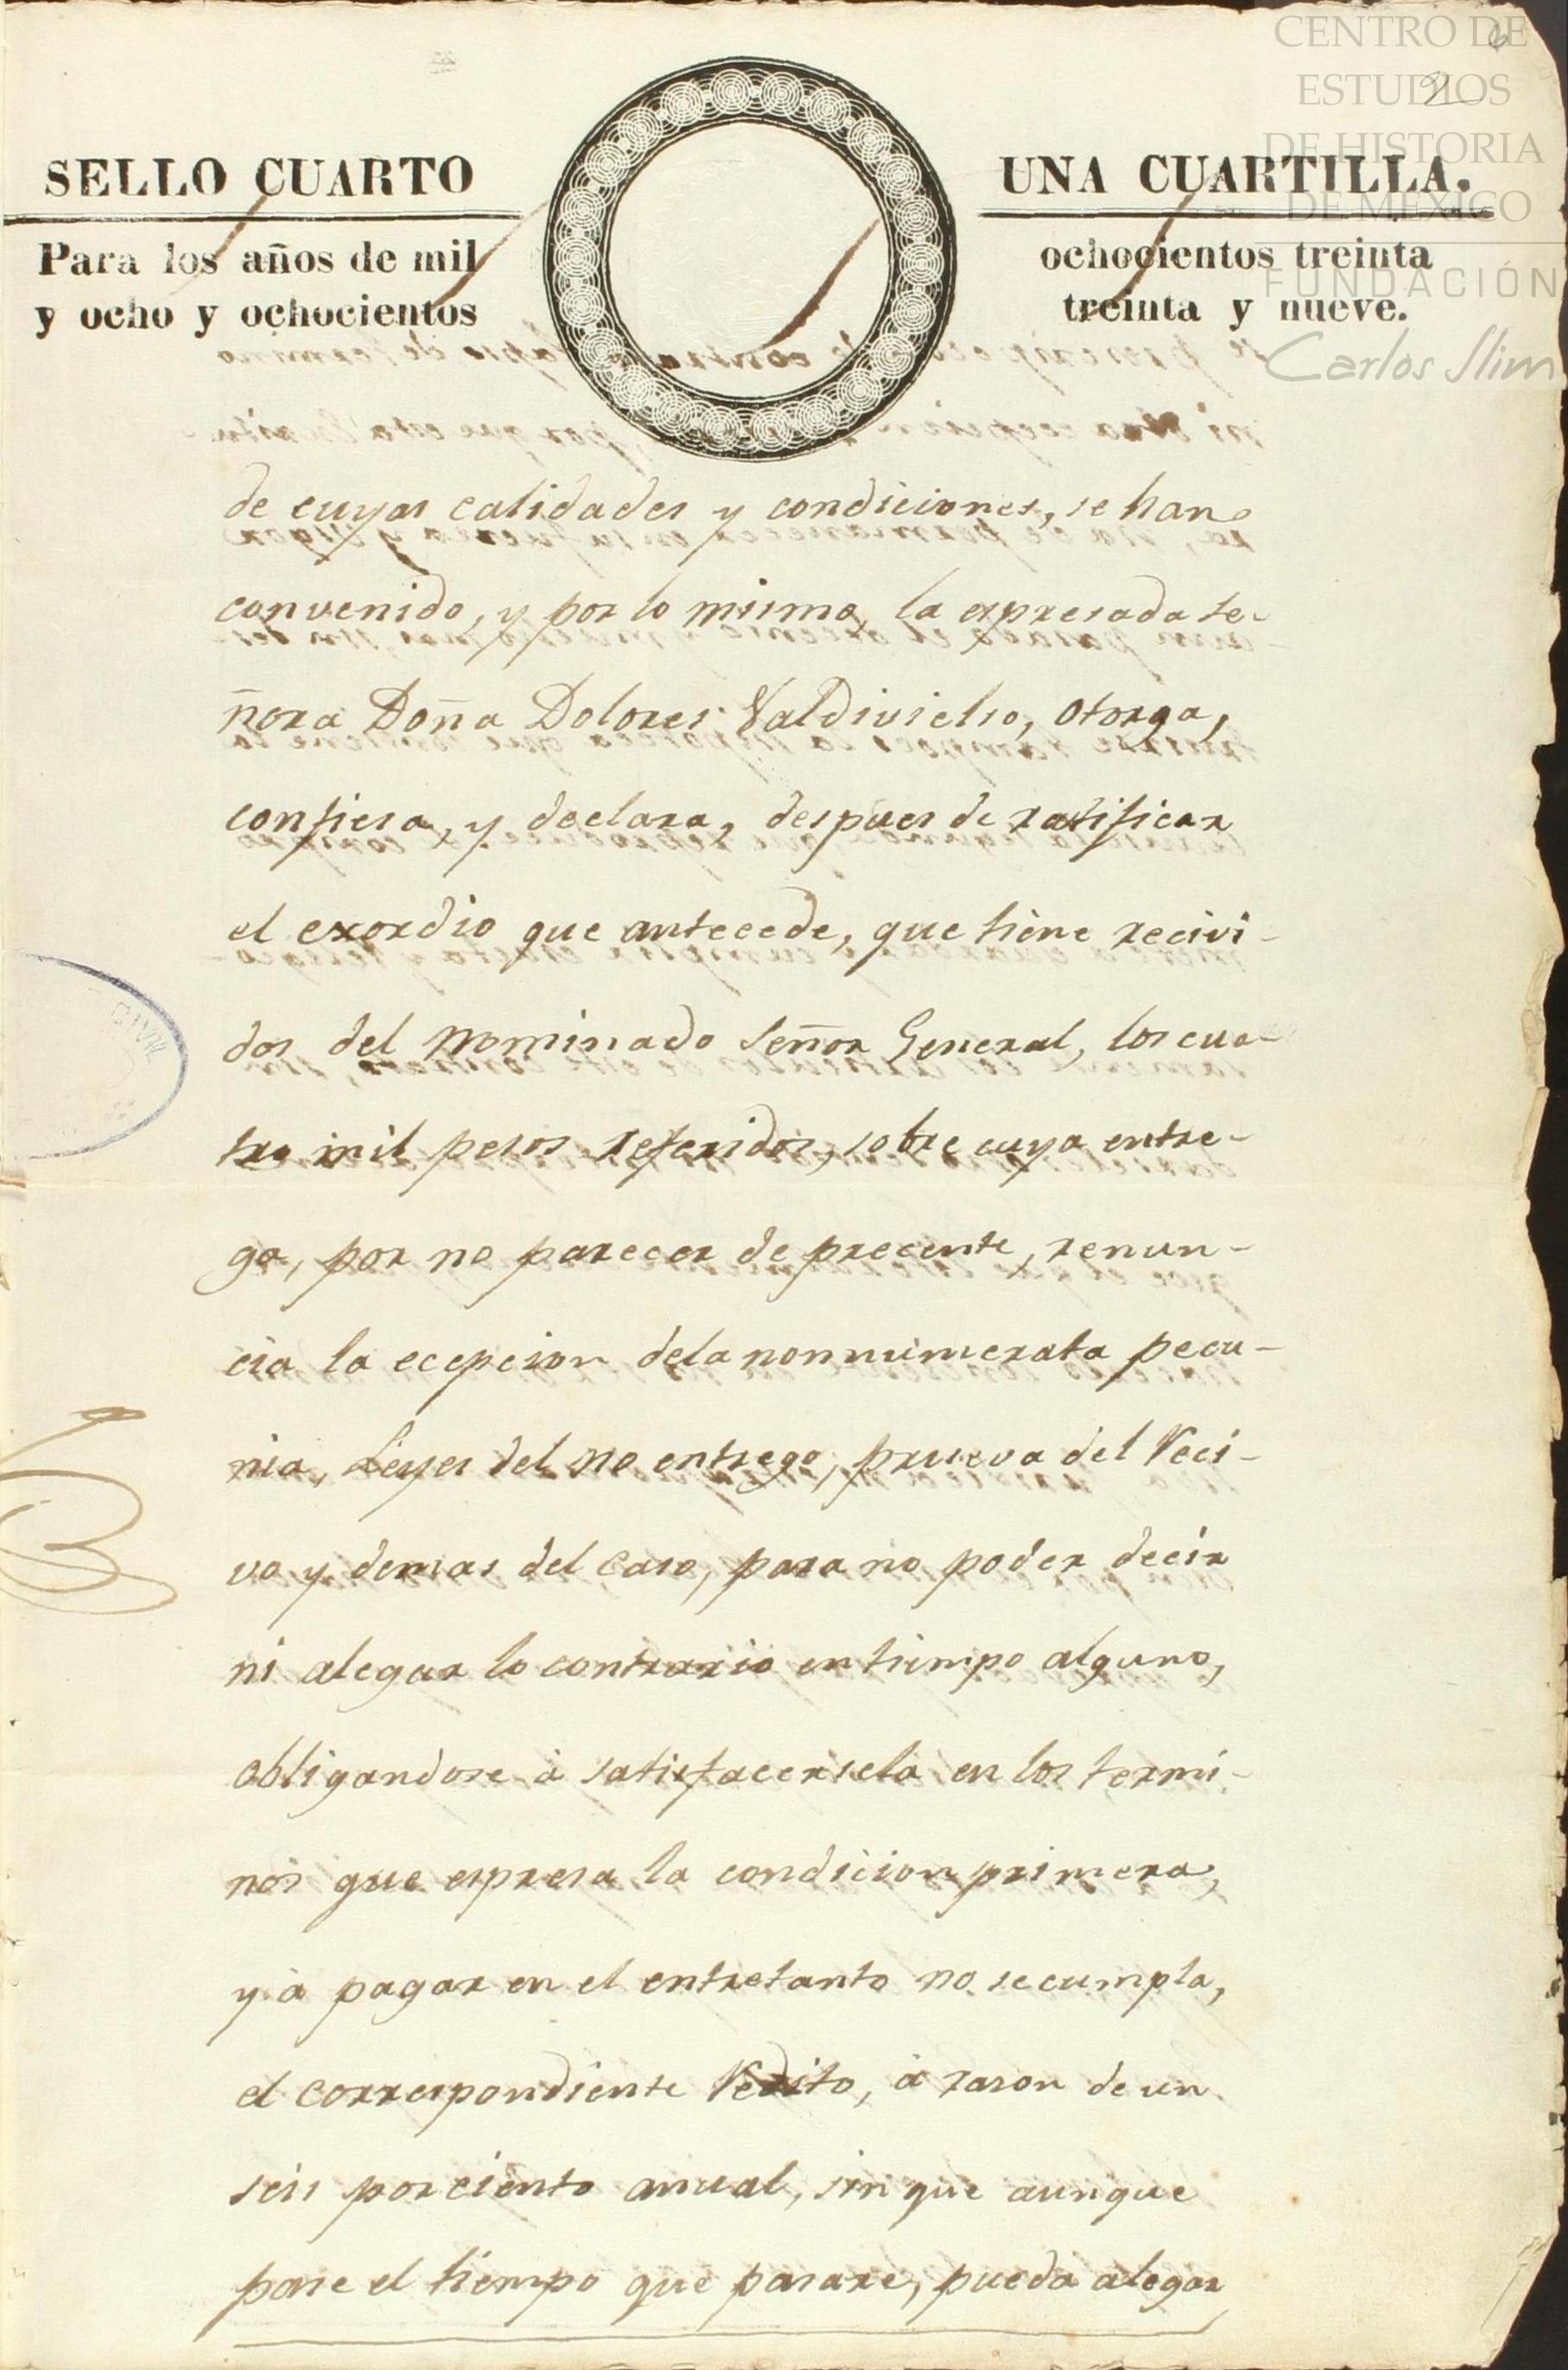 CENTRO DE
ESTUDIOS
DE HISTORIA
DE MÉXICO
FUNDACIÓN
Carlos Slim
SELLO CUARTO
UNA CUARTILLA.
Para los años de mil
ochocientos treinta
y ocho y ochocientos
treinta y nueve.
de cuyas calidades y condiciones, se han
convenido, y por lo mismo, la espresada se-
ñora Doña Dolores Valdivielso, otorga,
confiesa, y declara, despues de ratificar
el exordio que antecede, que tiene recivi-
dos del nominado Señor General, los cua-
tro mil pesos referidos, sobre cuya entre-
ga, por no parecer de precente, renun-
cia la ecepcion dela non numerata pecu-
nia, Leyes del no entrego, prueva del Reci-
vo y demas del caso, para no poder decir
ni alegar lo contrario en tiempo alguno,
obligandose á satisfacersela en los termi-
nos que espresa la condicion primera,
y á pagar en el entretanto no se cumpla,
el correspondiente Redito, á rason de un
seis por ciento anual, sin que aunque
pase el tiempo que pasare, pueda alegar